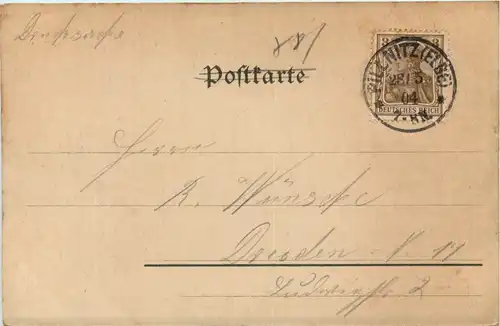 Drucksache
Postkarte
3 3
PILLNITZ (ELBE)
28/5
04
7-8N.
DEUTSCHES REICH
Herrn
R. Wünsche
Dresden - N. 14
Ludwigstr. 2